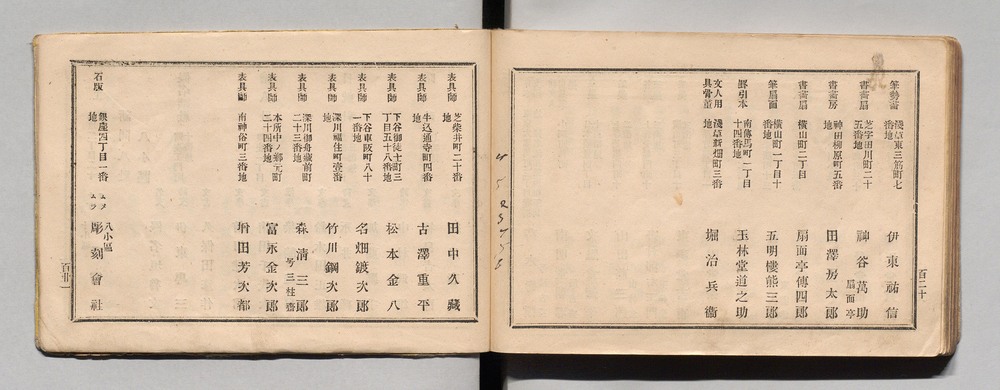 百二十
筆勢畵 淺草東三筋町七番地 伊東祐信
書畵扇 芝宇田川町二十五番地 扇面亭 神谷萬助
書畵房 神田柳原町五番地 田澤房太郎
書畵扇 横山町二丁目 扇面亭傳四郎
筆扇面 横山町一丁目十番地 五明樓熊三郎
罫引本 南傳馬町一丁目十四番地 玉林堂道之助
文人用具骨董 淺草新堀町三番地 堀治兵衞
表具師 芝柴井町二十番地 田中久藏
表具師 牛込通寺町四番地 古澤重平
表具師 下谷御徒士町三丁目五十八番地 松本金八
表具師 下谷車阪町八十一番地 名畑鍍次郎
表具師 深川福住町壹番地 竹川鋼次郎
表具師 深川御舟藏前町二十三番地 森清三郎 号三桂齋
表具師 本所中ノ郷元町二十四番地 富永金次郎
表具師 南神保町三番地 増田芳次郎
石版 銀座四丁目一番地 八小區 彫刻會社
百廿一